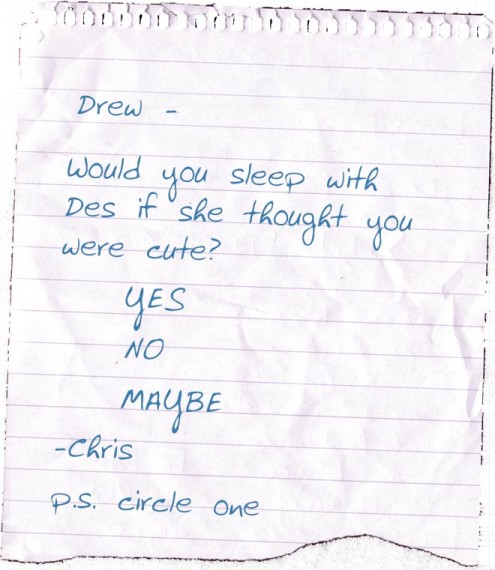 Drew -
Would you sleep with
Des if she thought you
were cute?
YES
NO
MAYBE
-Chris
P.S. circle one